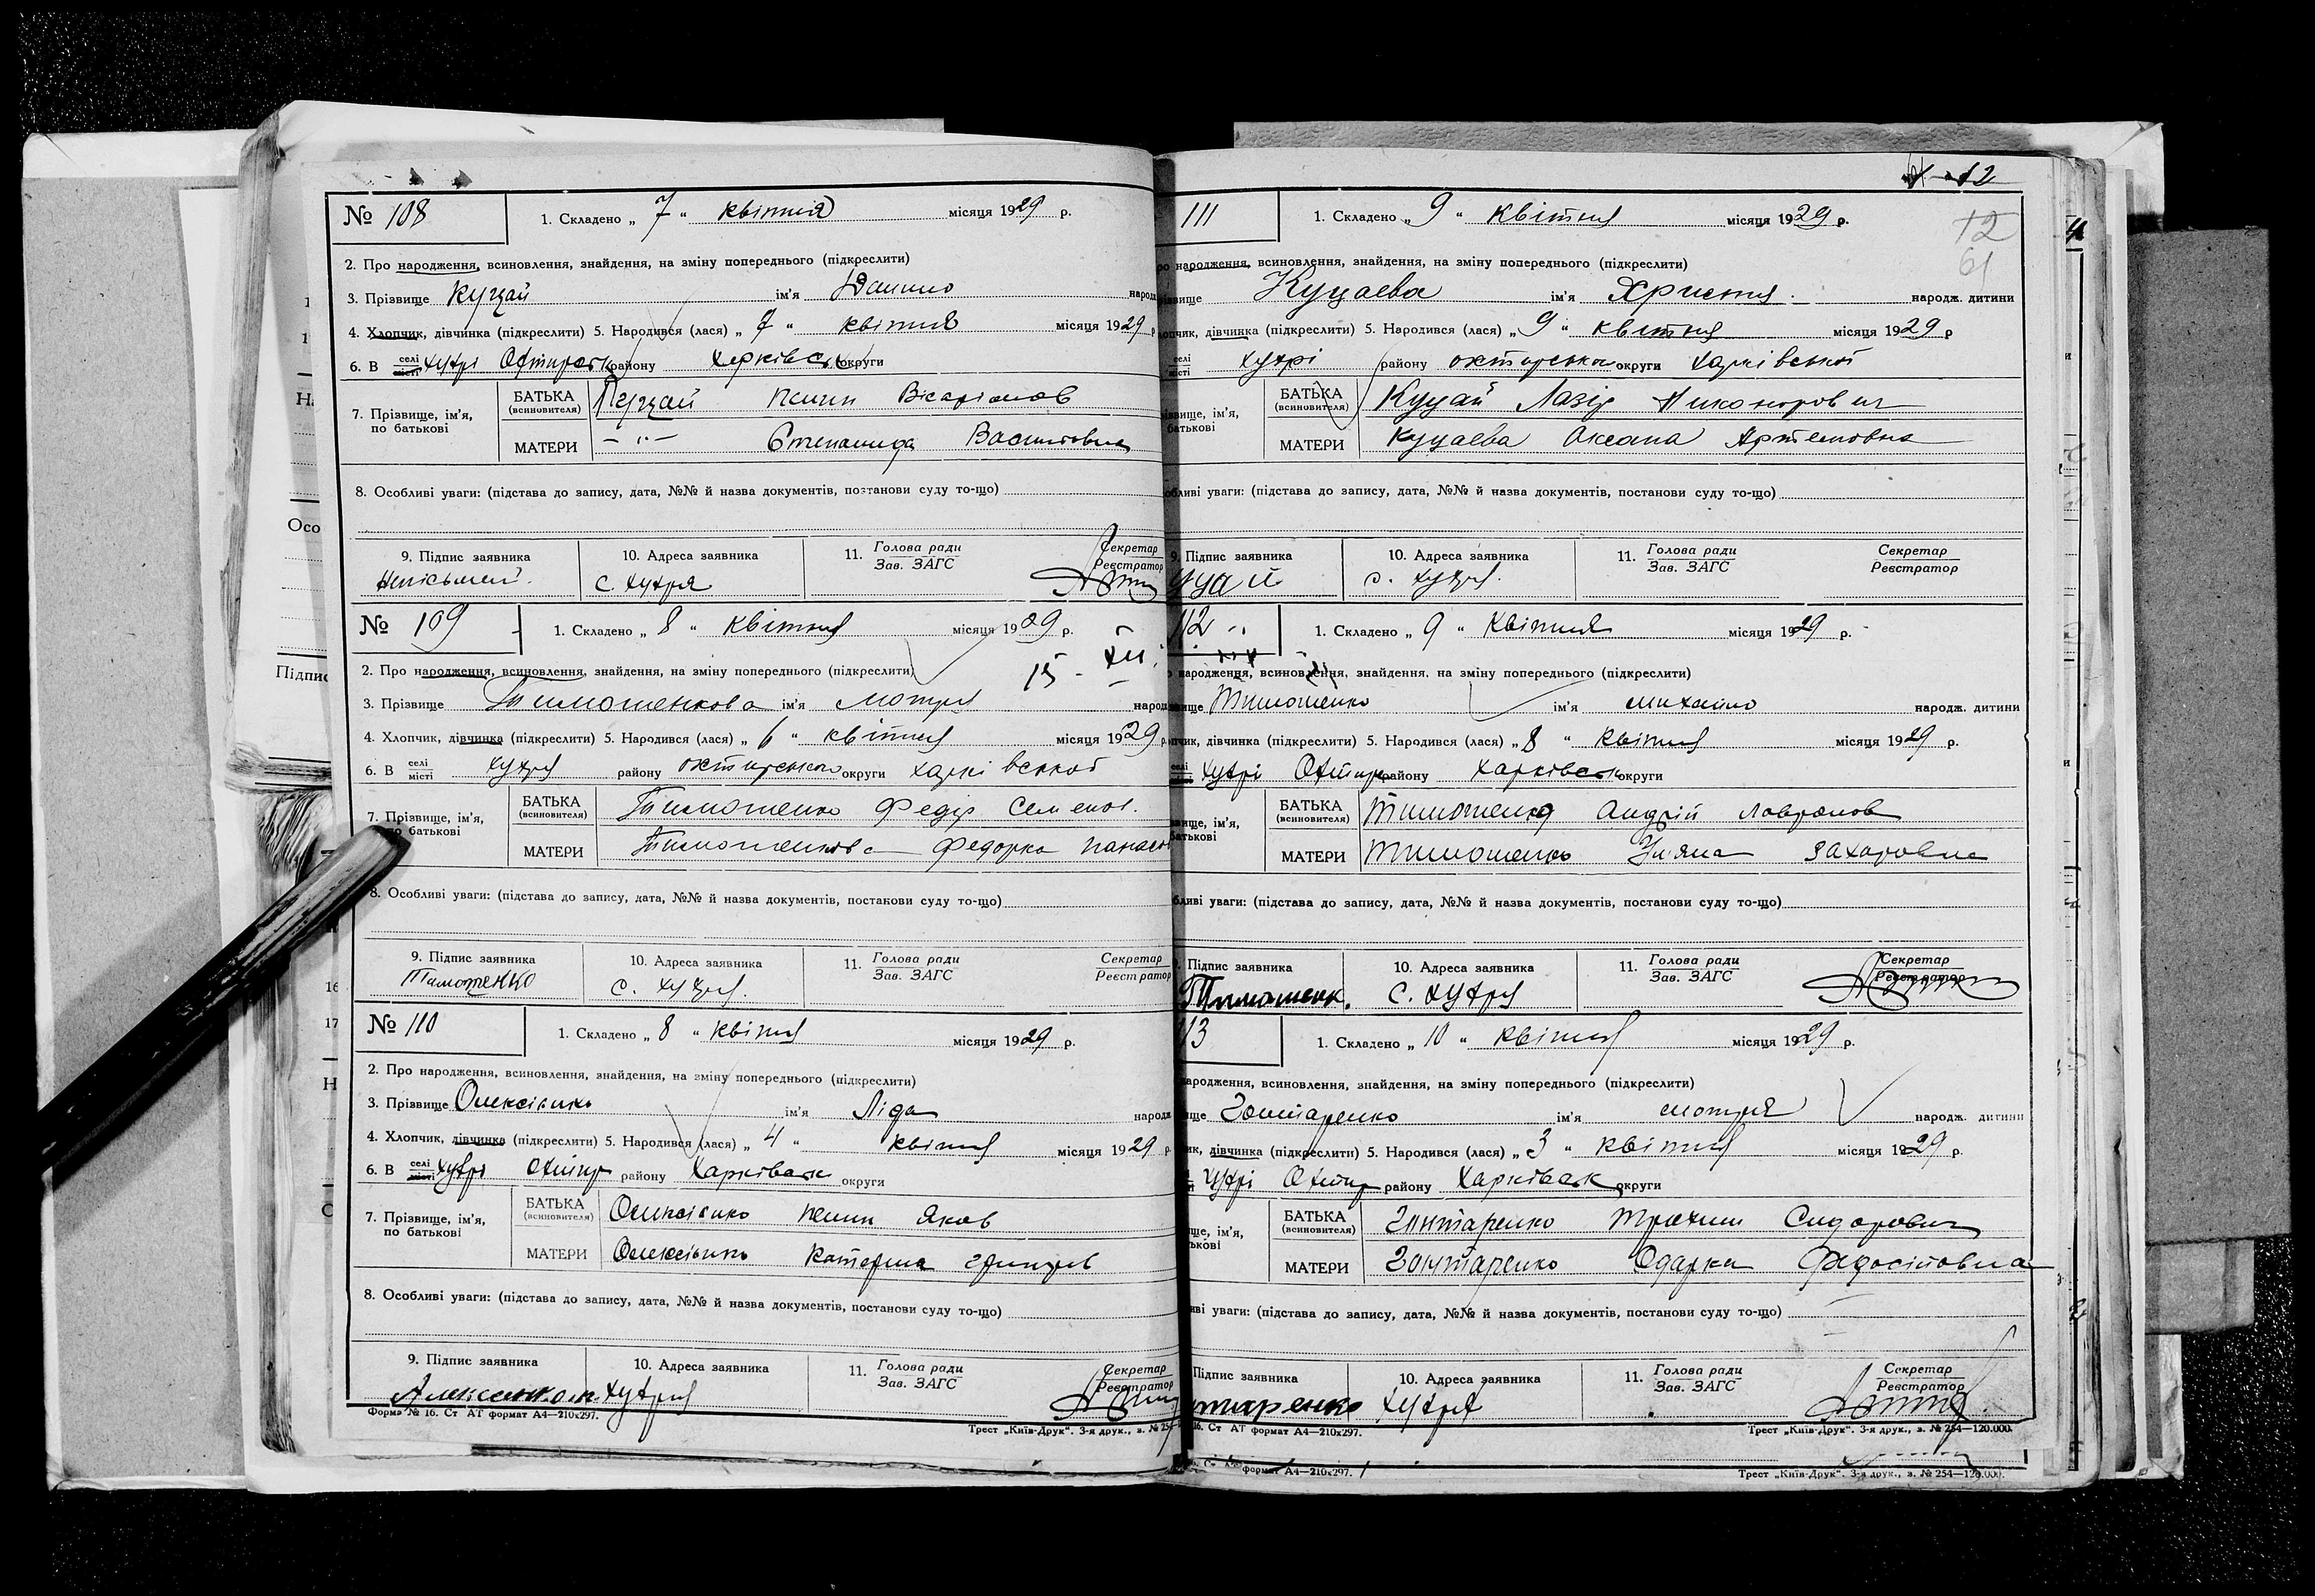 № 108 1. Складено „ 7 “ квітня місяця 1929 р.
2. Про народження, всиновлення, знайдення, на зміну попереднього (підкреслити)
3. Прізвище Куцай ім'я Данило народ
4. Хлопчик, дівчинка (підкреслити) 5. Народився (лася) „ 7 “ квітня місяця 1929 р
6. В селі місті Хухрі Охтирськ району Харківськ округи
7. Прізвище, ім'я, по батькові БАТЬКА (всиновителя) Куцай Пилип Вісаріонов
МАТЕРИ — „ — Степанида Василівна
8. Особливі уваги: (підстава до запису, дата, №№ й назва документів, постанови суду то-що)
9. Підпис заявника 10. Адреса заявника 11. Голова ради Зав. ЗАГС Секретар Реєстратор
Неписьмен. с. Хухря
№ 109 1. Складено „ 8 “ квітня місяця 1929 р.
15 - XII
2. Про народження, всиновлення, знайдення, на зміну попереднього (підкреслити)
3. Прізвище Тимошенкова ім'я Мотря народ
4. Хлопчик, дівчинка (підкреслити) 5. Народився (лася) „ 6 “ квітня місяця 1929 р.
6. В селі місті Хухря району охтирського округи харківської
7. Прізвище, ім'я, по батькові БАТЬКА (всиновителя) Тимошенко Федір Семенов.
МАТЕРИ Тимошенкова Федорка Панасов
8. Особливі уваги: (підстава до запису, дата, №№ й назва документів, постанови суду то-що)
9. Підпис заявника 10. Адреса заявника 11. Голова ради Зав. ЗАГС Секретар Реєстратор
Тимошенко с. Хухря.
№ 110 1. Складено „ 8 “ квітня місяця 1929 р.
2. Про народження, всиновлення, знайдення, на зміну попереднього (підкреслити)
3. Прізвище Олексієнко ім'я Ліда народ
4. Хлопчик, дівчинка (підкреслити) 5. Народився (лася) „ 4 “ квітня місяця 1929 р.
6. В селі місті Хухрі Охтир району Харківськ округи
7. Прізвище, ім'я, по батькові БАТЬКА (всиновителя) Олексієнко Пилип Яков
МАТЕРИ Олексієнко Катерина
8. Особливі уваги: (підстава до запису, дата, №№ й назва документів, постанови суду то-що)
9. Підпис заявника 10. Адреса заявника 11. Голова ради Зав. ЗАГС Секретар Реєстратор
Хухря
Форма № 16. Ст АТ формат А4—210х297. Трест „Київ-Друк“. 3-я друк., з. № 254
12
12
61
111 1. Складено „ 9 “ Квітня місяця 1929 р.
народження, всиновлення, знайдення, на зміну попереднього (підкреслити)
Куцаева ім'я Христя. народж. дитини
дівчинка (підкреслити) 5. Народився (лася) „ 9 “ квітня місяця 1929 р
селі місті Хухрі району охтирського округи харківської
ім'я, БАТЬКА (всиновителя) Куцай Лазір Никонорович
МАТЕРИ Куцаева Оксана Артемовна
уваги: (підстава до запису, дата, №№ й назва документів, постанови суду то-що)
9. Підпис заявника 10. Адреса заявника 11. Голова ради Зав. ЗАГС Секретар Реєстратор
уцай с. Хухря.
112 1. Складено „ 9 “ Квітня місяця 1929 р.
народження, всиновлення, знайдення, на зміну попереднього (підкреслити)
Тимошенко ім'я Михайло народж. дитини
дівчинка (підкреслити) 5. Народився (лася) „ 8 “ Квітня місяця 1929 р.
селі Хухрі Охтирк району Харківськ округи
ім'я, БАТЬКА (всиновителя) Тимошенко Андрій Лавронов
МАТЕРИ Тимошенко Уляна Захаровна
уваги: (підстава до запису, дата, №№ й назва документів, постанови суду то-що)
Підпис заявника 10. Адреса заявника 11. Голова ради Зав. ЗАГС Секретар Реєстратор
Тимошенк. с. Хухря
113 1. Складено „ 10 “ Квітня місяця 1929 р.
народження, всиновлення, знайдення, на зміну попереднього (підкреслити)
Гонтаренко ім'я Мотря народж. дитини
дівчинка (підкреслити) 5. Народився (лася) „ 3 “ Квітня місяця 1929 р.
Хухрі Охтир району Харківськ округи
ім'я, БАТЬКА (всиновителя) Гонтаренко Трохим Сидорович
МАТЕРИ Гонтаренко Одарка Федосіївовна
уваги: (підстава до запису, дата, №№ й назва документів, постанови суду то-що)
Підпис заявника 10. Адреса заявника 11. Голова ради Зав. ЗАГС Секретар Реєстратор
таренко Хухря
16. Ст АТ формат А4—210х297. Трест „Київ-Друк“. 3-я друк., з. № 254—120.000.
формат А4—210х297. Трест „Київ-Друк“. 3-я друк., з. № 254—120.000.